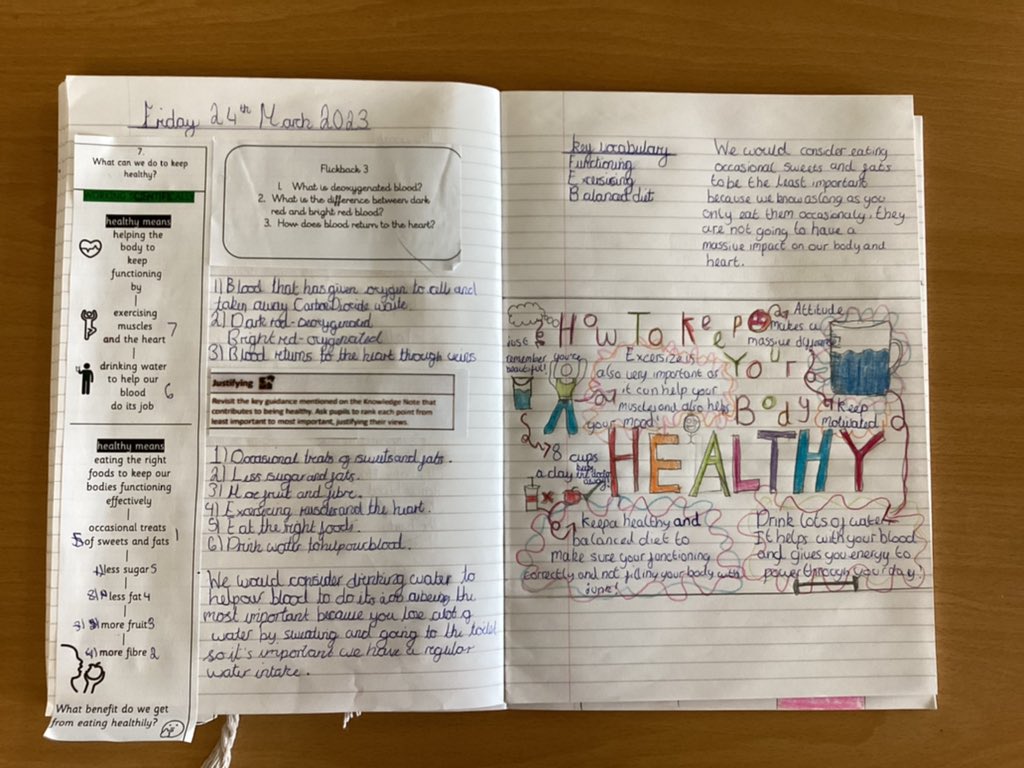 Friday 24th March 2023
7.
What can we do to keep
healthy?
healthy means
helping the
body to
keep
functioning
by
exercising
muscles 7
and the heart
drinking water
to help our 6
blood
do its job
healthy means
eating the right
foods to keep our
bodies functioning
effectively
occasional treats
5 of sweets and fats 1
less sugar 5
less fat 4
more fruit 3
4) more fibre 2
What benefit do we get
from eating healthily?
Flickback 3
1. What is deoxygenated blood?
2. What is the difference between dark
red and bright red blood?
3. How does blood return to the heart?
1) Blood that has given oxygen to cell and
taken away Carbon Dioxide waste.
2) Dark red - Deoxygenated
Bright red - oxygenated
3) Blood returns to the heart through veins
Justifying
Revisit the key guidance mentioned on the Knowledge Note that
contributes to being healthy. Ask pupils to rank each point from
least important to most important, justifying their views.
1) Occasional treats of sweets and fats.
2) Less sugar and fats.
3) More fruit and fibre.
4) Exersising muscles and the heart.
5) Eat the right foods.
6) Drink water to help our blood.
We would consider drinking water to
help our blood to do its job as being the
most important because you lose alot of
water by sweating and going to the toilet
so it's important we have a regular
water intake.
key vocabulary
Functioning
Excersising
Balanced diet
We would consider eating
occasional sweets and fats
to be the least important
because we know as long as you
only eat them occasionaly, they
are not going to have a
massive impact on our body and
heart.
How To Keep
Your
Body
HEALTHY
Attitude
makes a
massive
just
remember you're
beautiful!
Excersize is
also very important as
it can help your
muscles and also helps
your mood!
keep
motivated
8 cups
a day keeps
the doctor
away!
Keep a healthy and
balanced diet to
make sure your functioning
correctly and not filling your body with
Drink lots of water
It helps with your blood
and gives you energy to
power through your day!